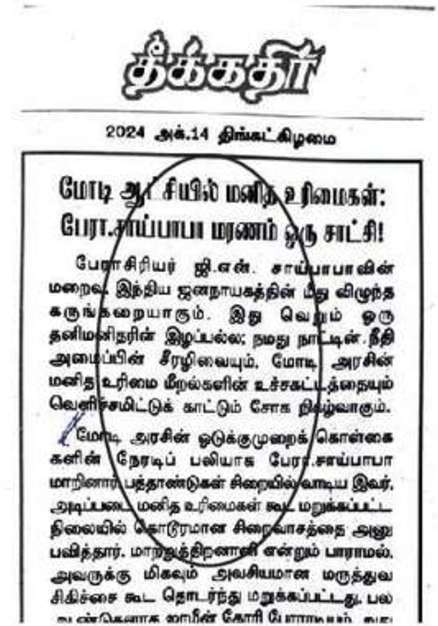 தீக்கதிர்
2024 அக்.14 திங்கட்கிழமை
மோடி ஆட்சியில் மனித உரிமைகள்:
பேரா.சாய்பாபா மரணம் ஒரு சாட்சி!
பேராசிரியர் ஜி.என். சாய்பாபாவின்
மறைவு, இந்திய ஜனநாயகத்தின் மீது விழுந்த
கருங்கறையாகும். இது வெறும் ஒரு
தனிமனிதரின் இழப்பல்ல; நமது நாட்டின் நீதி
அமைப்பின் சீரழிவையும், மோடி அரசின்
மனித உரிமை மீறல்களின் உச்சகட்டத்தையும்
வெளிச்சமிட்டுக் காட்டும் சோக நிகழ்வாகும்.
மோடி அரசின் ஒடுக்குமுறைக் கொள்கை
களின் நேரடிப் பலியாக பேரா.சாய்பாபா
மாறினார். பத்தாண்டுகள் சிறையில் வாடிய இவர்,
அடிப்படை மனித உரிமைகள் கூட மறுக்கப்பட்ட
நிலையில் கொடூரமான சிறைவாசத்தை அனு
பவித்தார். மாற்றுத்திறனாளி என்றும் பாராமல்,
அவருக்கு மிகவும் அவசியமான மருத்துவ
சிகிச்சை கூட தொடர்ந்து மறுக்கப்பட்டது. பல
ஆண்டுகளாக ஜாமீன் கோரி போராடியும், அது